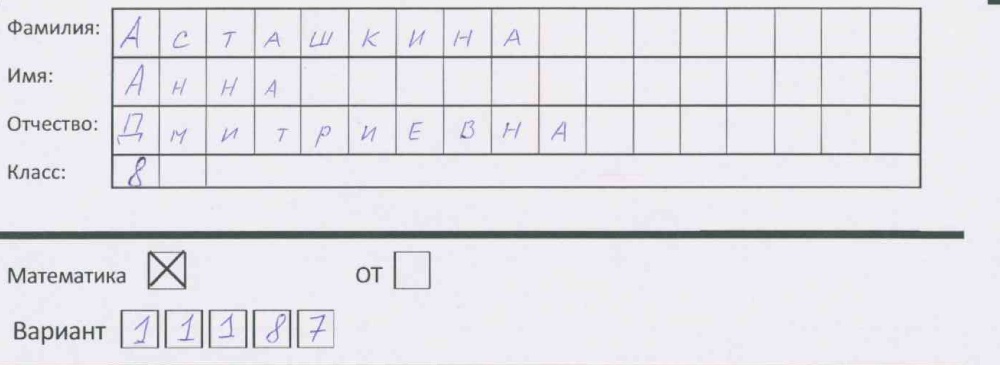 Фамилия: Асташкина
Имя: Анна
Отчество: Дмитриевна
Класс: 8
Математика ☒ ОТ ☐
Вариант 11187